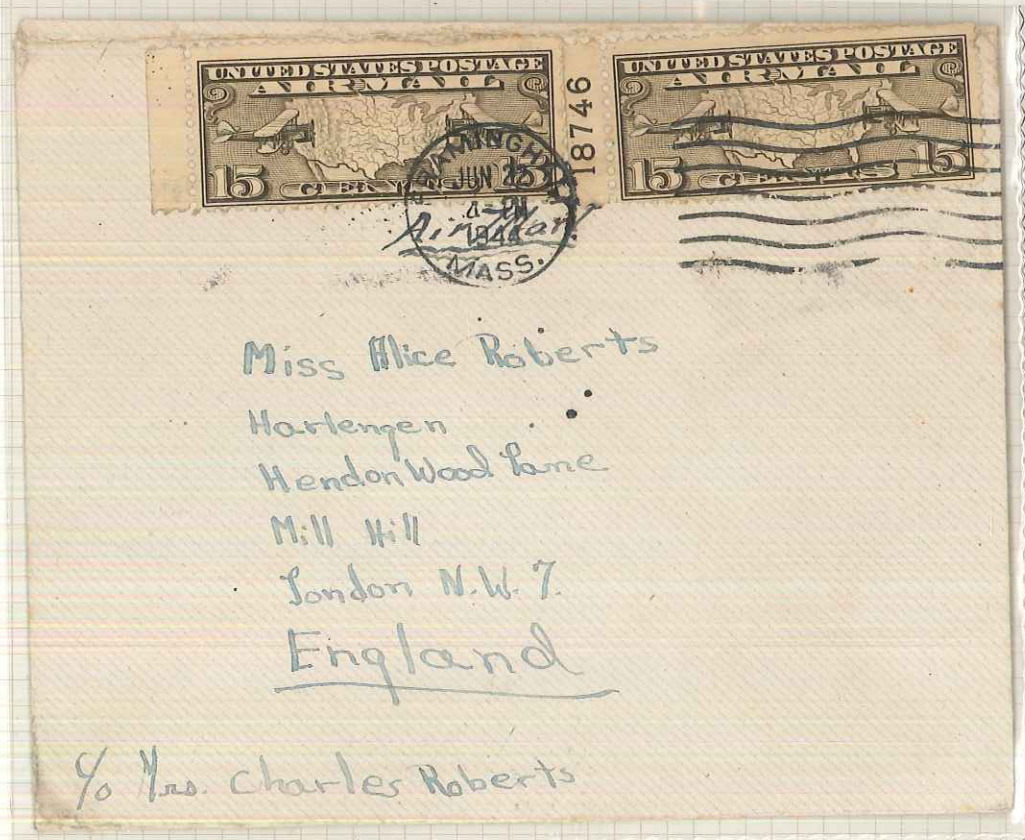 UNITED STATES POSTAGE
AIR MAIL
15 CENTS 15
18746
UNITED STATES POSTAGE
AIR MAIL
15 CENTS 15
FRAMINGHAM
JUN 23
4-PM
1944
MASS.
Air Mail
Miss Alice Roberts
Harlengen
Hendon Wood Lane
Mill Hill
London N.W. 7.
England
c/o Mrs. Charles Roberts